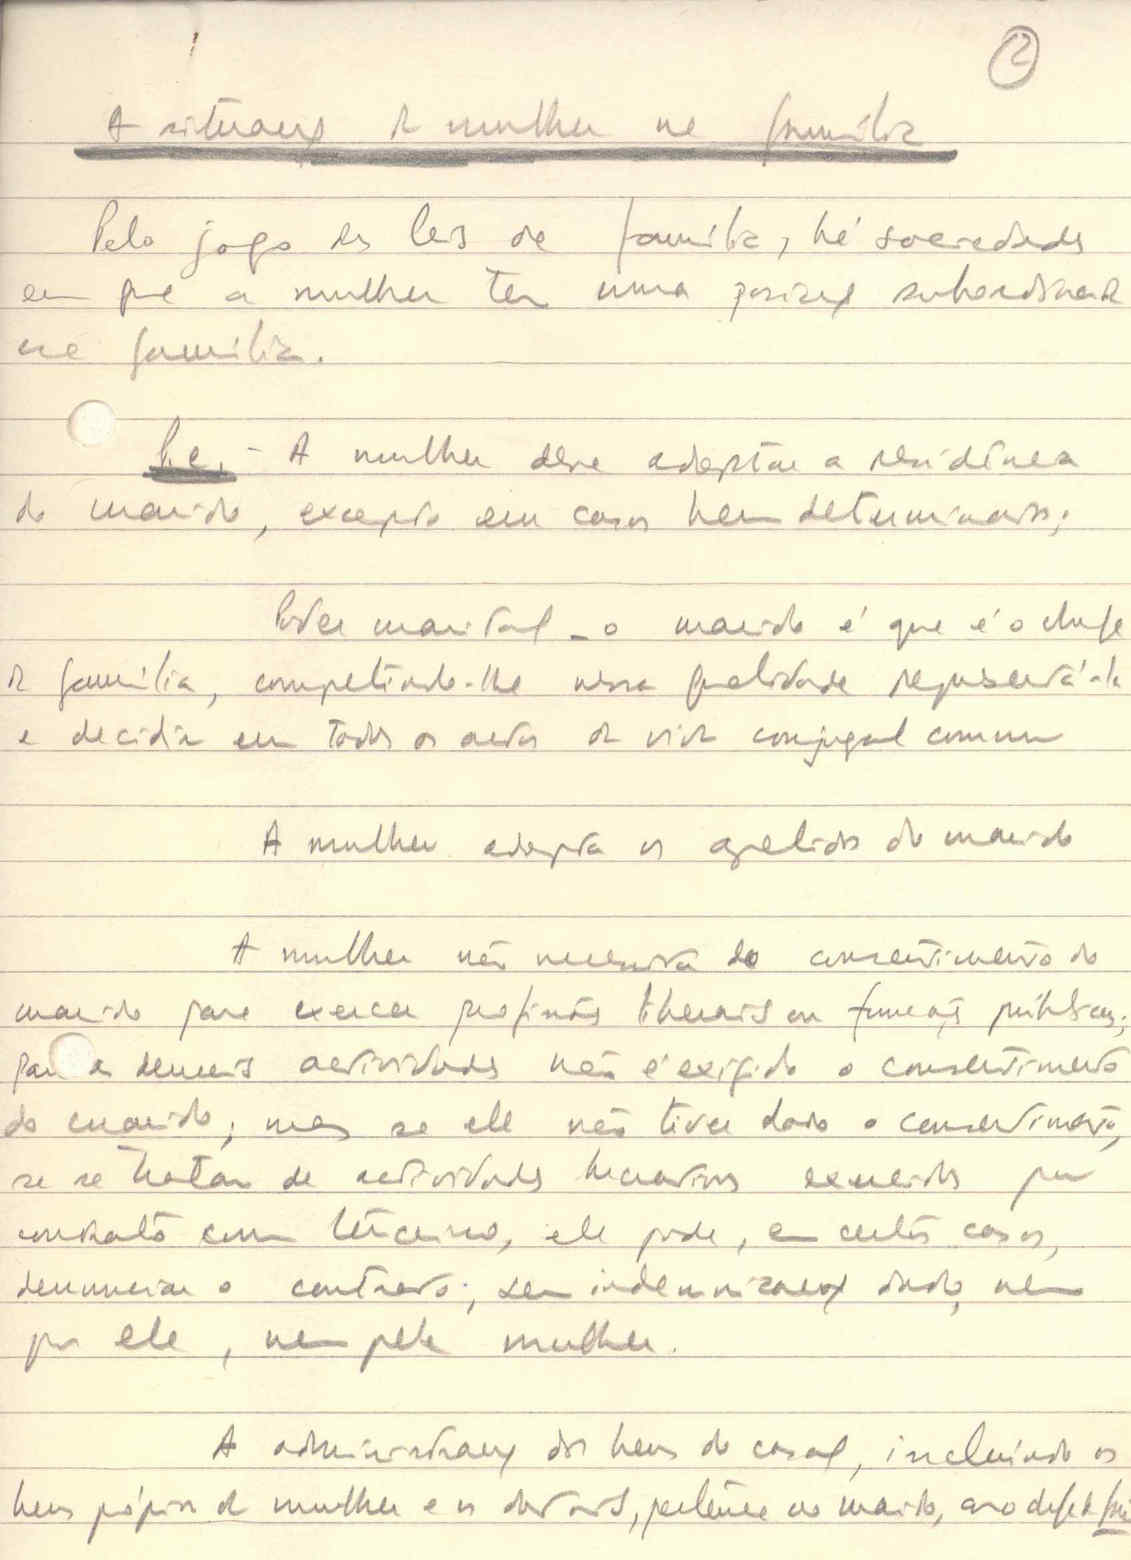 2
A situação da mulher na família
Pelo jogo das leis de família, há sociedades
em que a mulher tem uma posição subordinada
na família.
P.e. - A mulher deve adoptar a residência
do marido, excepto em casos bem determinados;
Poder marital - o marido é que é o chefe
da família, competindo-lhe nessa qualidade representá-la
e decidir em todos os actos da vida conjugal comum
A mulher adopta os apelidos do marido
A mulher não necessita do consentimento do
marido para exercer profissões liberais ou funções públicas;
para as demais actividades não é exigido o consentimento
do marido; mas se ele não tiver dado o consentimento,
se se tratar de actividades lucrativas exercidas por
contrato com terceiro, ele pode, em certos casos,
denunciar o contrato; sem indemnização devida, nem
por ele, nem pela mulher.
A administração dos bens do casal, incluindo os
bens próprios da mulher e os dotais, pertence ao marido, como chefe da